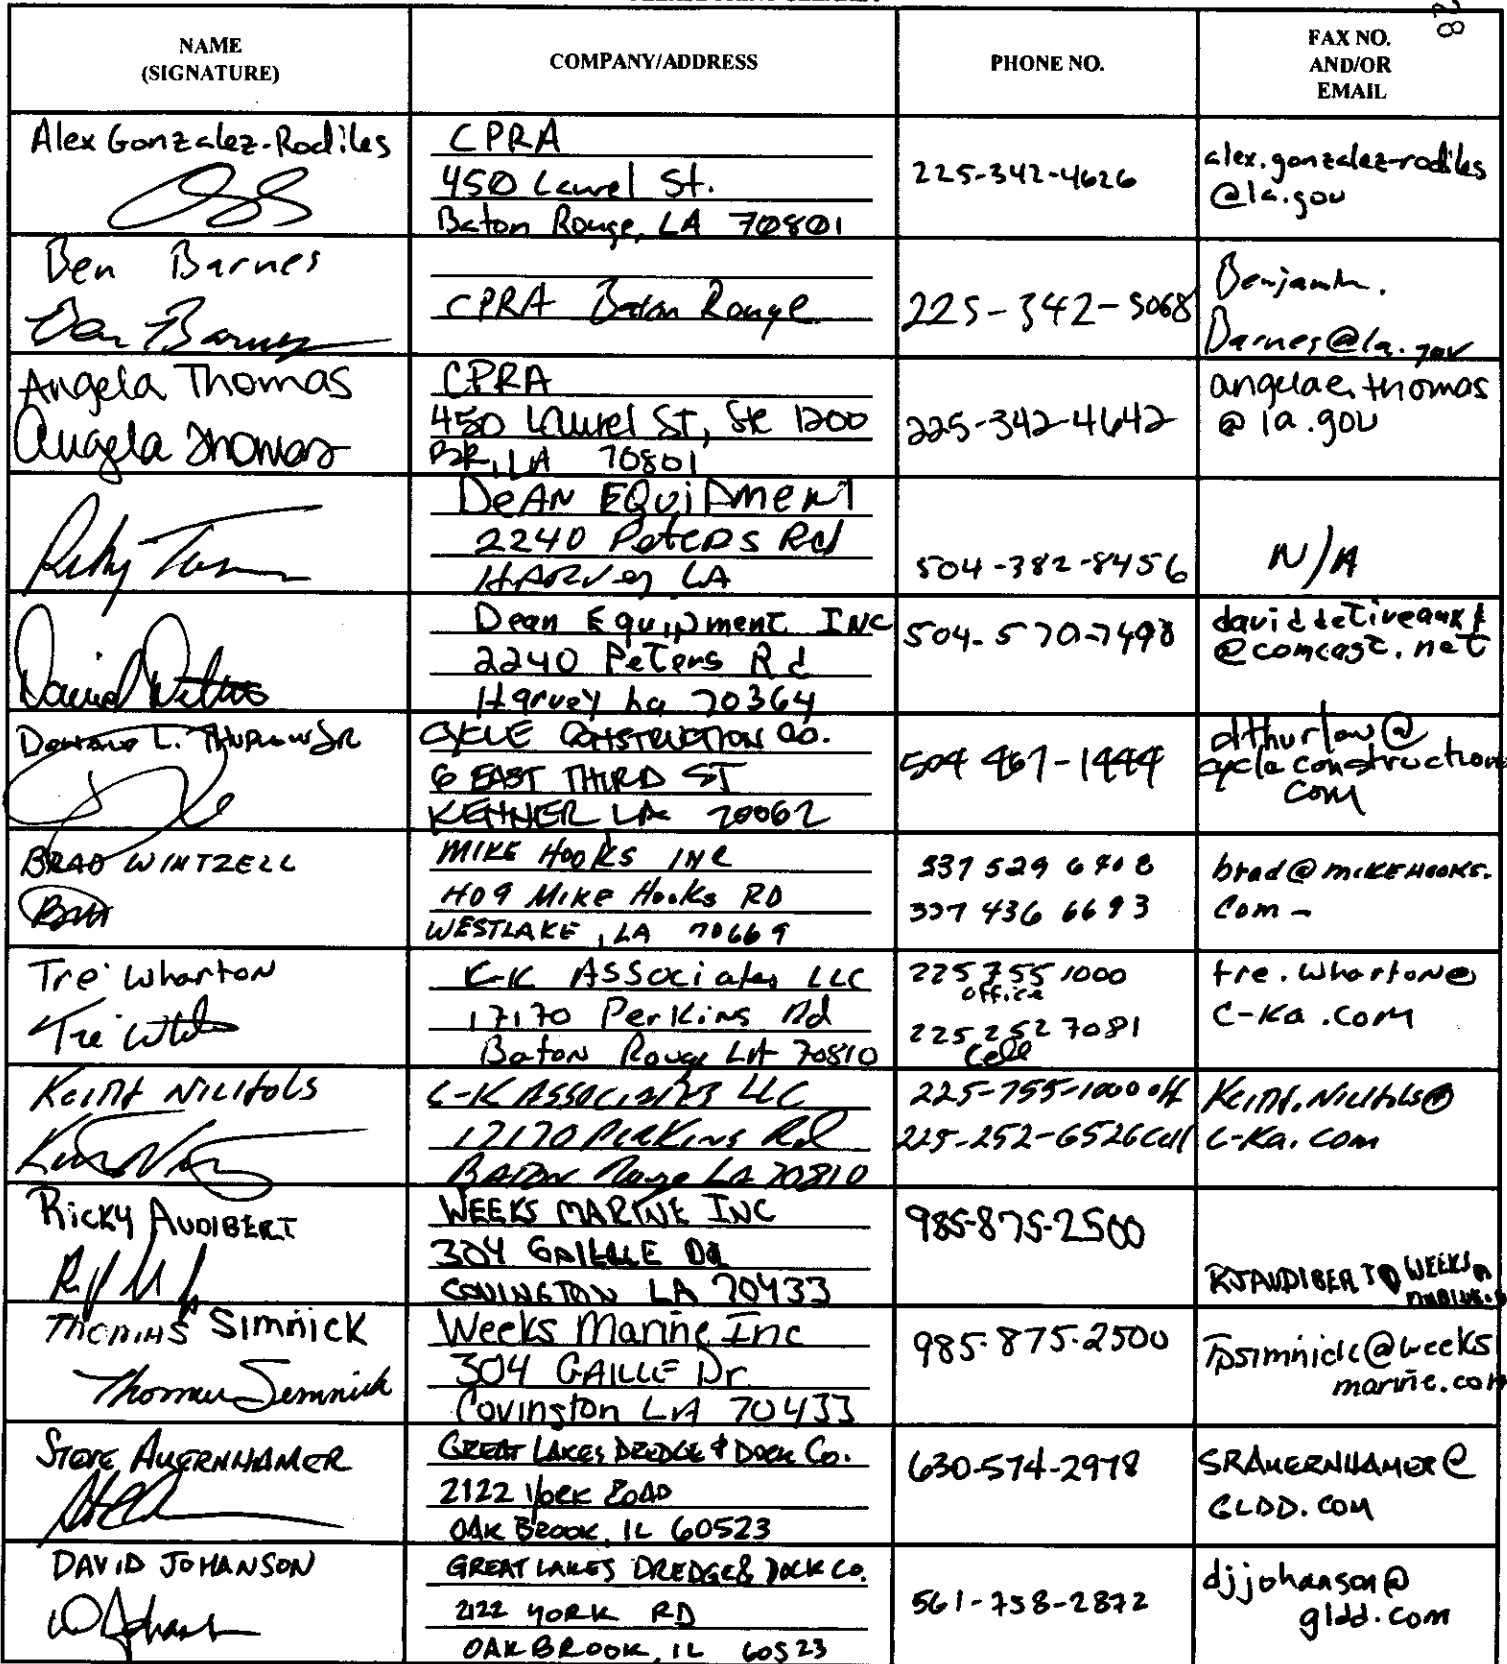 28
NAME
(SIGNATURE)
COMPANY/ADDRESS
PHONE NO.
FAX NO.
AND/OR
EMAIL
Alex Gonzalez-Rodiles
CPRA
450 Laurel St.
Baton Rouge, LA 70801
225-342-4626
alex.gonzalez-rodiles
@la.gov
Ben Barnes
Ben Barnes
CPRA Baton Rouge
225-342-5068
Benjamin.
Barnes@la.gov
Angela Thomas
Angela Thomas
CPRA
450 Laurel St, Ste 1200
BR, LA 70801
225-342-4642
angelae.thomas
@la.gov
DeAN EQuiPmenT
2240 Peters Rd
HARVey LA
504-382-8456
N/A
Dean Equipment INC
2240 Peters Rd
Harvey La 70364
504-570-7498
@comcast.net
L. THURLOW JR
CYCLE CONSTRUCTION CO.
6 EAST THIRD ST
KENNER LA 70062
504 467-1444
dthurlow@
cycleconstruction
com
BRAD WINTZELL
MIKE HOOKS INC
409 MIKE Hooks RD
WESTLAKE, LA 70669
337 436 6693
brad@MIKEHOOKS.
Com -
Tre' Wharton
C-K ASSociates LLC
17170 Perkins Rd
Baton Rouge LA 70810
225 755 1000
office
225 252 7081
Cell
tre.wharton@
C-Ka.com
Keith Nichols
C-K Associates LLC
17170 Perkins Rd
Baton Rouge LA 70810
225-755-1000 off
225-252-6526 Cell
Keith.Nichols@
C-Ka.com
Ricky AUDIBERT
WEEKS MARINE INC
304 GAILLE DR
COVINGTON LA 70433
985-875-2500
RJAUDIBERT@WEEKS
Thomas Simnick
Thomas Simnick
Weeks Marine Inc
304 GAILLE Dr
Covington LA 70433
985-875-2500
TPSimnick@weeks
marine.com
STEVE AUERNHAMER
GREAT LAKES DREDGE & DOCK CO.
2122 YORK ROAD
OAK BROOK, IL 60523
630-574-2978
SRAUERNHAMER@
GLDD.COM
DAVID JOHANSON
GREAT LAKES DREDGE & DOCK CO.
2122 YORK RD
OAK BROOK, IL 60523
561-758-2872
djjohanson@
gldd.com